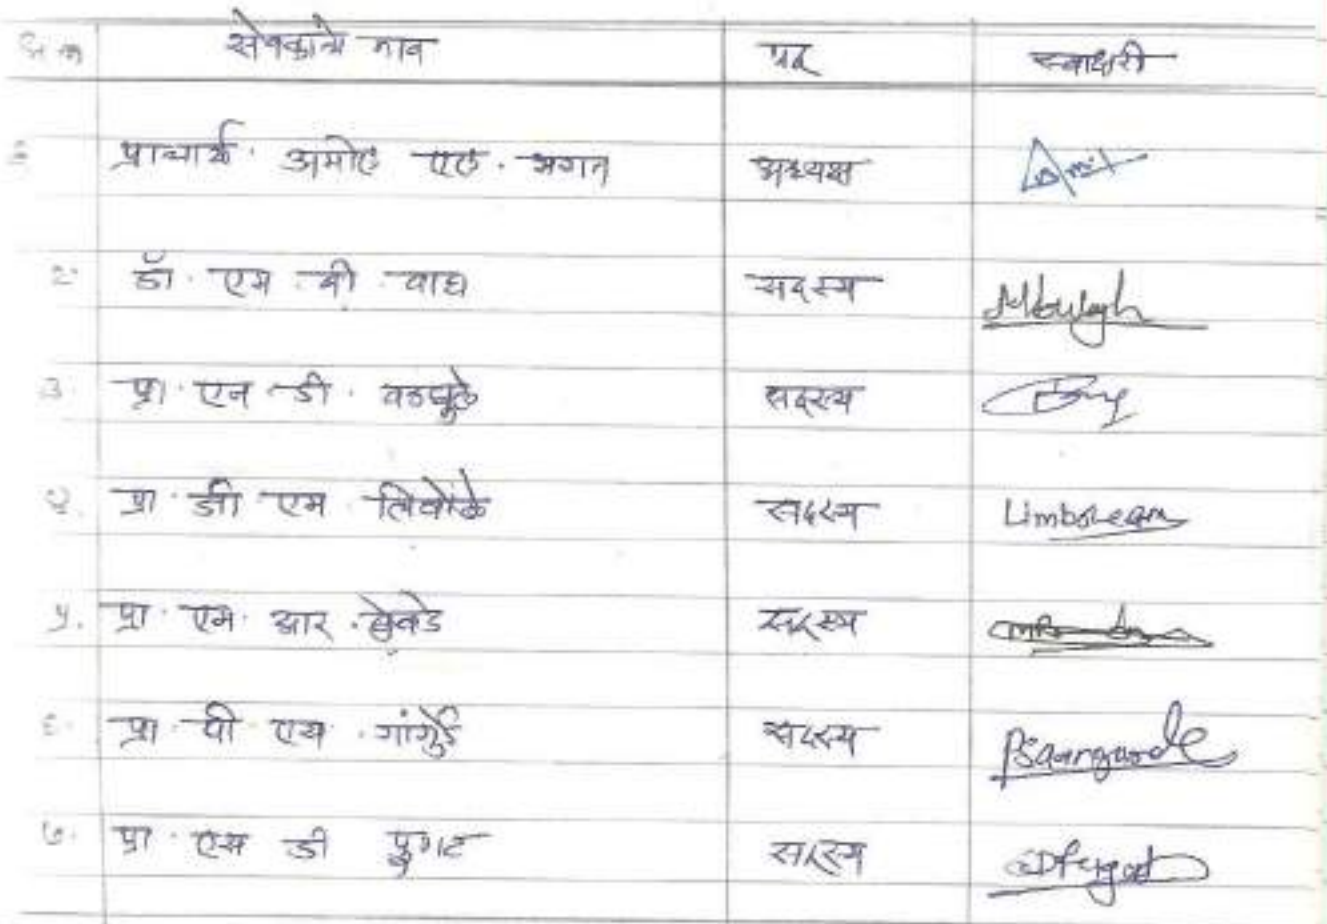 अ क्र सेवकाचे नाव पद स्वाक्षरी
१ प्राचार्य. अमोल एल. भगत अध्यक्ष Amit
२. डॉ. एम. बी. वाघ सदस्य MbWagh
३. प्रा. एन. डी. वडघुले सदस्य
४. प्रा. डी एम. लिंबोरे सदस्य
५. प्रा. एम. आर. सदस्य
६. प्रा. पी एस. गांगुर्डे सदस्य PSGangurde
७. प्रा. एस डी फुगट सदस्य SDfugat